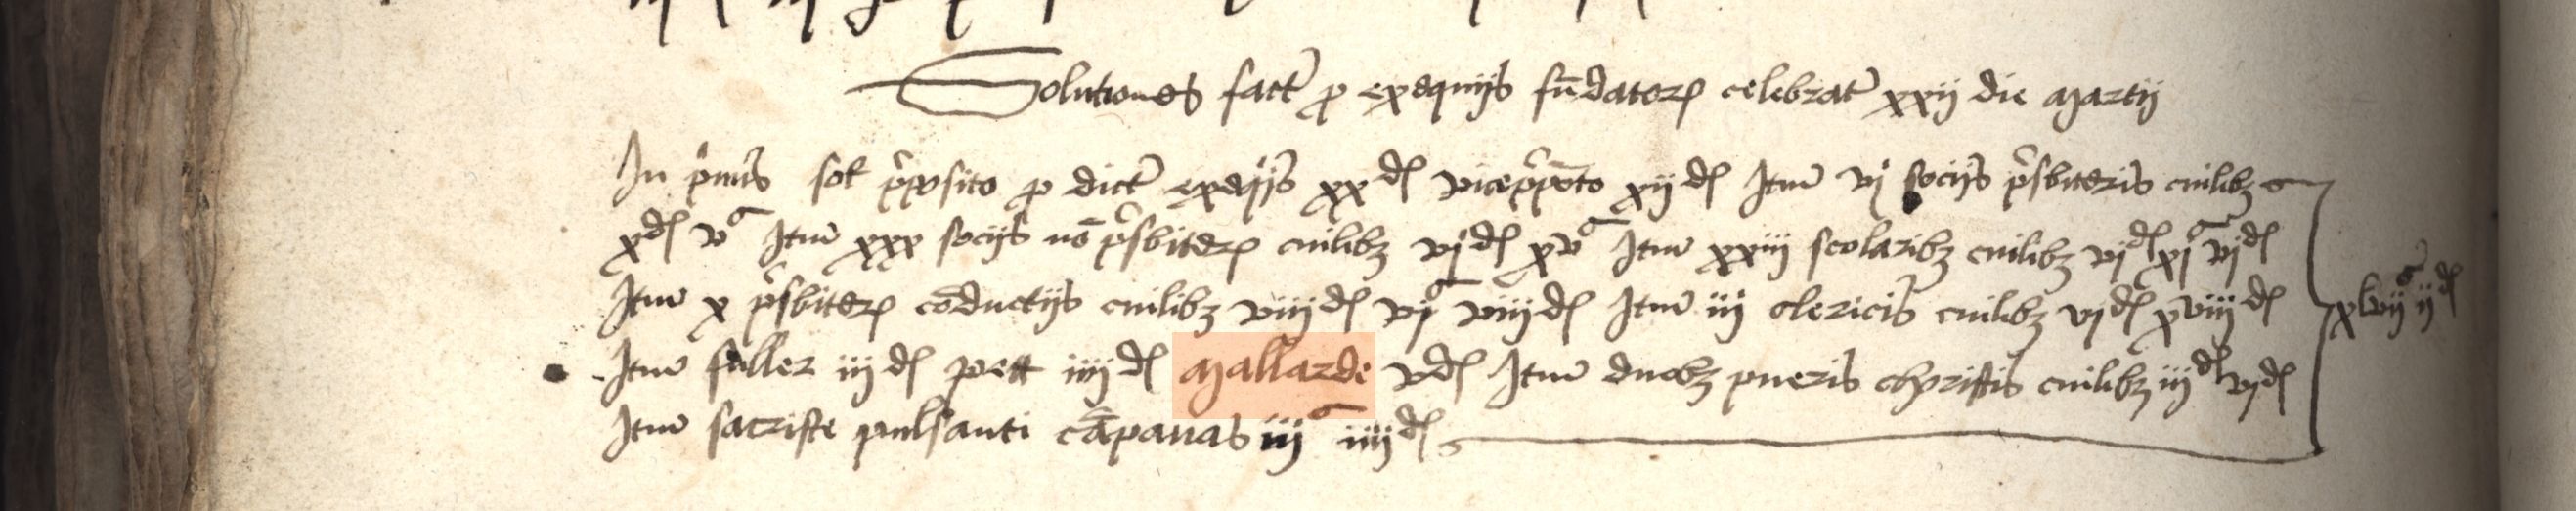 Solutiones fact̄ ꝑ exequijs fūdatorꝝ celebrat̄ xxij die Martij
In pͥmis sol p̄posito ꝑ dict̄ exeqͥjs xxd vicep̄poto xijd Itm̄ vj socijs p̄sbiteris cuilibꝫ
xd vs Itm̄ xxx socijs nō p̄sbiterꝝ cuilibꝫ vjd xvs Itm̄ xxiij scolaribꝫ cuilibꝫ vjd xjs vjd
Itm̄ x p̄sbiterꝝ cōductijs cuilibꝫ viijd vjs viijd Itm̄ iij clericis cuilibꝫ vjd xviijd xlvijs ijd
Itm̄ fuller iijd pett iiijd Mallarde vd Itm̄ duobꝫ pueris christis cuilibꝫ iijd vjd
Itm̄ sacriste pulsanti cāpanas iijs iiijd